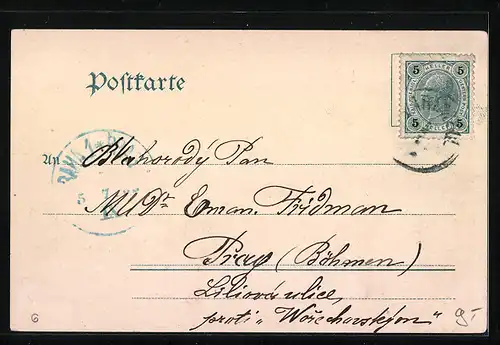 Postkarte
5 HELLER 5
5 5
An Blahorodý Pan
MUDr Eman. Fridman
Prag (Böhmen)
Liliová ulice,
proti „Wořechovským"
6